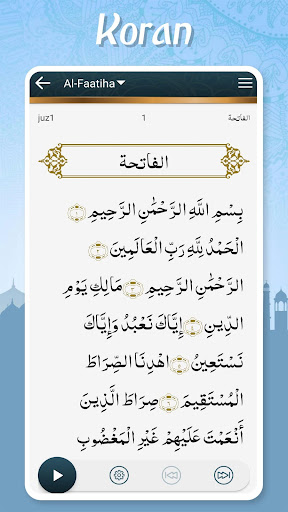 Koran
Al-Faatiha
juz1 1 الفاتحة
الفاتحة
بِسْمِ اللَّهِ الرَّحْمَٰنِ الرَّحِيمِ ١
الْحَمْدُ لِلَّهِ رَبِّ الْعَالَمِينَ ٢
الرَّحْمَٰنِ الرَّحِيمِ ٣ مَالِكِ يَوْمِ
الدِّينِ ٤ إِيَّاكَ نَعْبُدُ وَإِيَّاكَ
نَسْتَعِينُ ٥ اهْدِنَا الصِّرَاطَ
الْمُسْتَقِيمَ ٦ صِرَاطَ الَّذِينَ
أَنْعَمْتَ عَلَيْهِمْ غَيْرِ الْمَغْضُوبِ